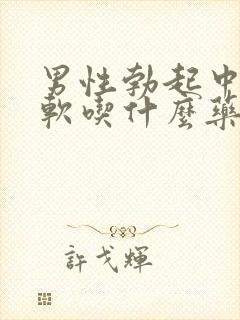 男性勃起中
軟喫什麼藥
許戈輝